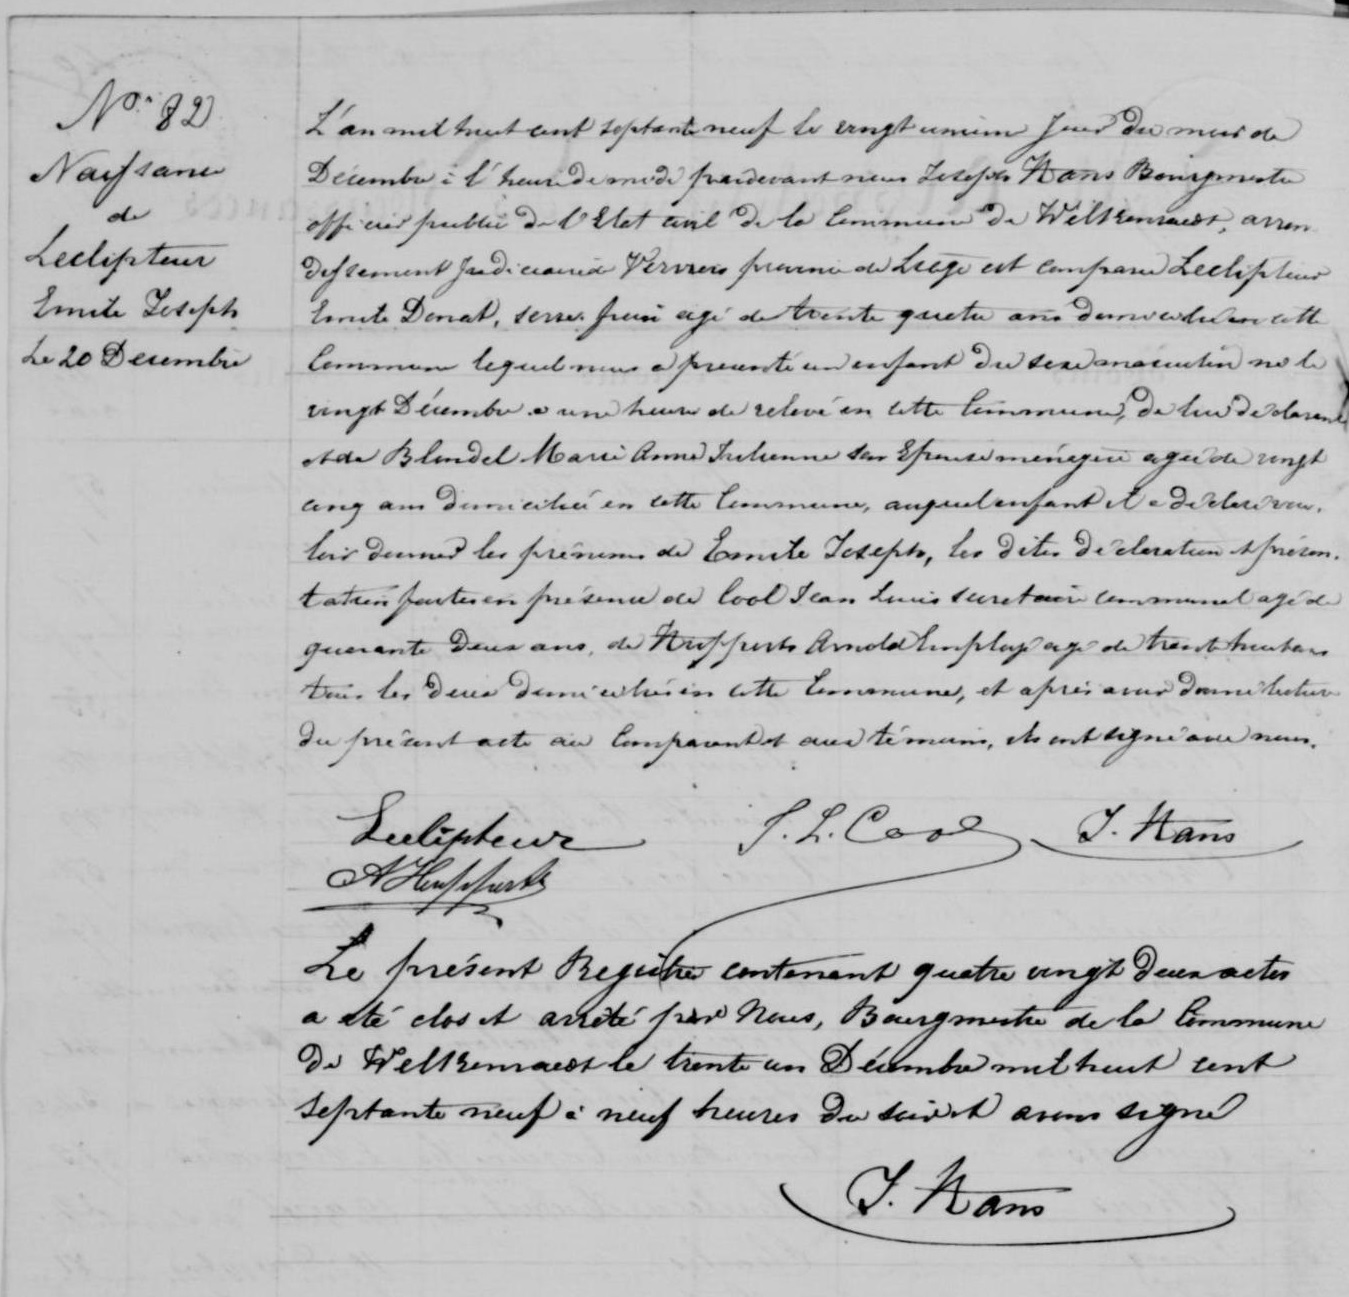 No. 82
Naissance
de
Leclipteur
Emile Joseph
Le 20 Decembre
L'an mil huit cent septante neuf le vingt unieme jour du mois de
Décembre à l'heure de midi pardevant nous Joseph Hans Bourgmestre
officier public de l'Etat civil de la Commune de Welkenraedt, arron
dissement judiciaire de Verviers province de Liège est comparu Leclipteur
Emile Donat, serre frein agé de trente quatre ans domicilié en cette
Commune lequel nous a présenté un enfant du sexe masculin né le
vingt Décembre à une heure de relevé en cette Commune, de lui déclarant
et de Blondel Marie Anne Julienne son Epouse ménagère agée de vingt
cinq ans domiciliée en cette Commune, auquel enfant il a déclaré vou-
loir donner les prénoms de Emile Joseph, les dites déclaration et présen-
tation faites en présence de Cool Jean Louis secretaire communal agé de
quarante deux ans, de Huppertz Arnold Employé agé de trente huit ans
tous les deux domiciliés en cette Commune, et après avoir donné lecture
du présent acte au Comparant et aux témoins, ils ont signé avec nous.
Leclipteur J. L. Cool J. Hans
A Huppertz
Le présent Registre contenant quatre vingt deux actes
a été clos et arrêté par Nous, Bourgmestre de la Commune
de Welkenraedt le trente un Décembre mil huit cent
septante neuf à neuf heures du soir et avons signé
J. Hans